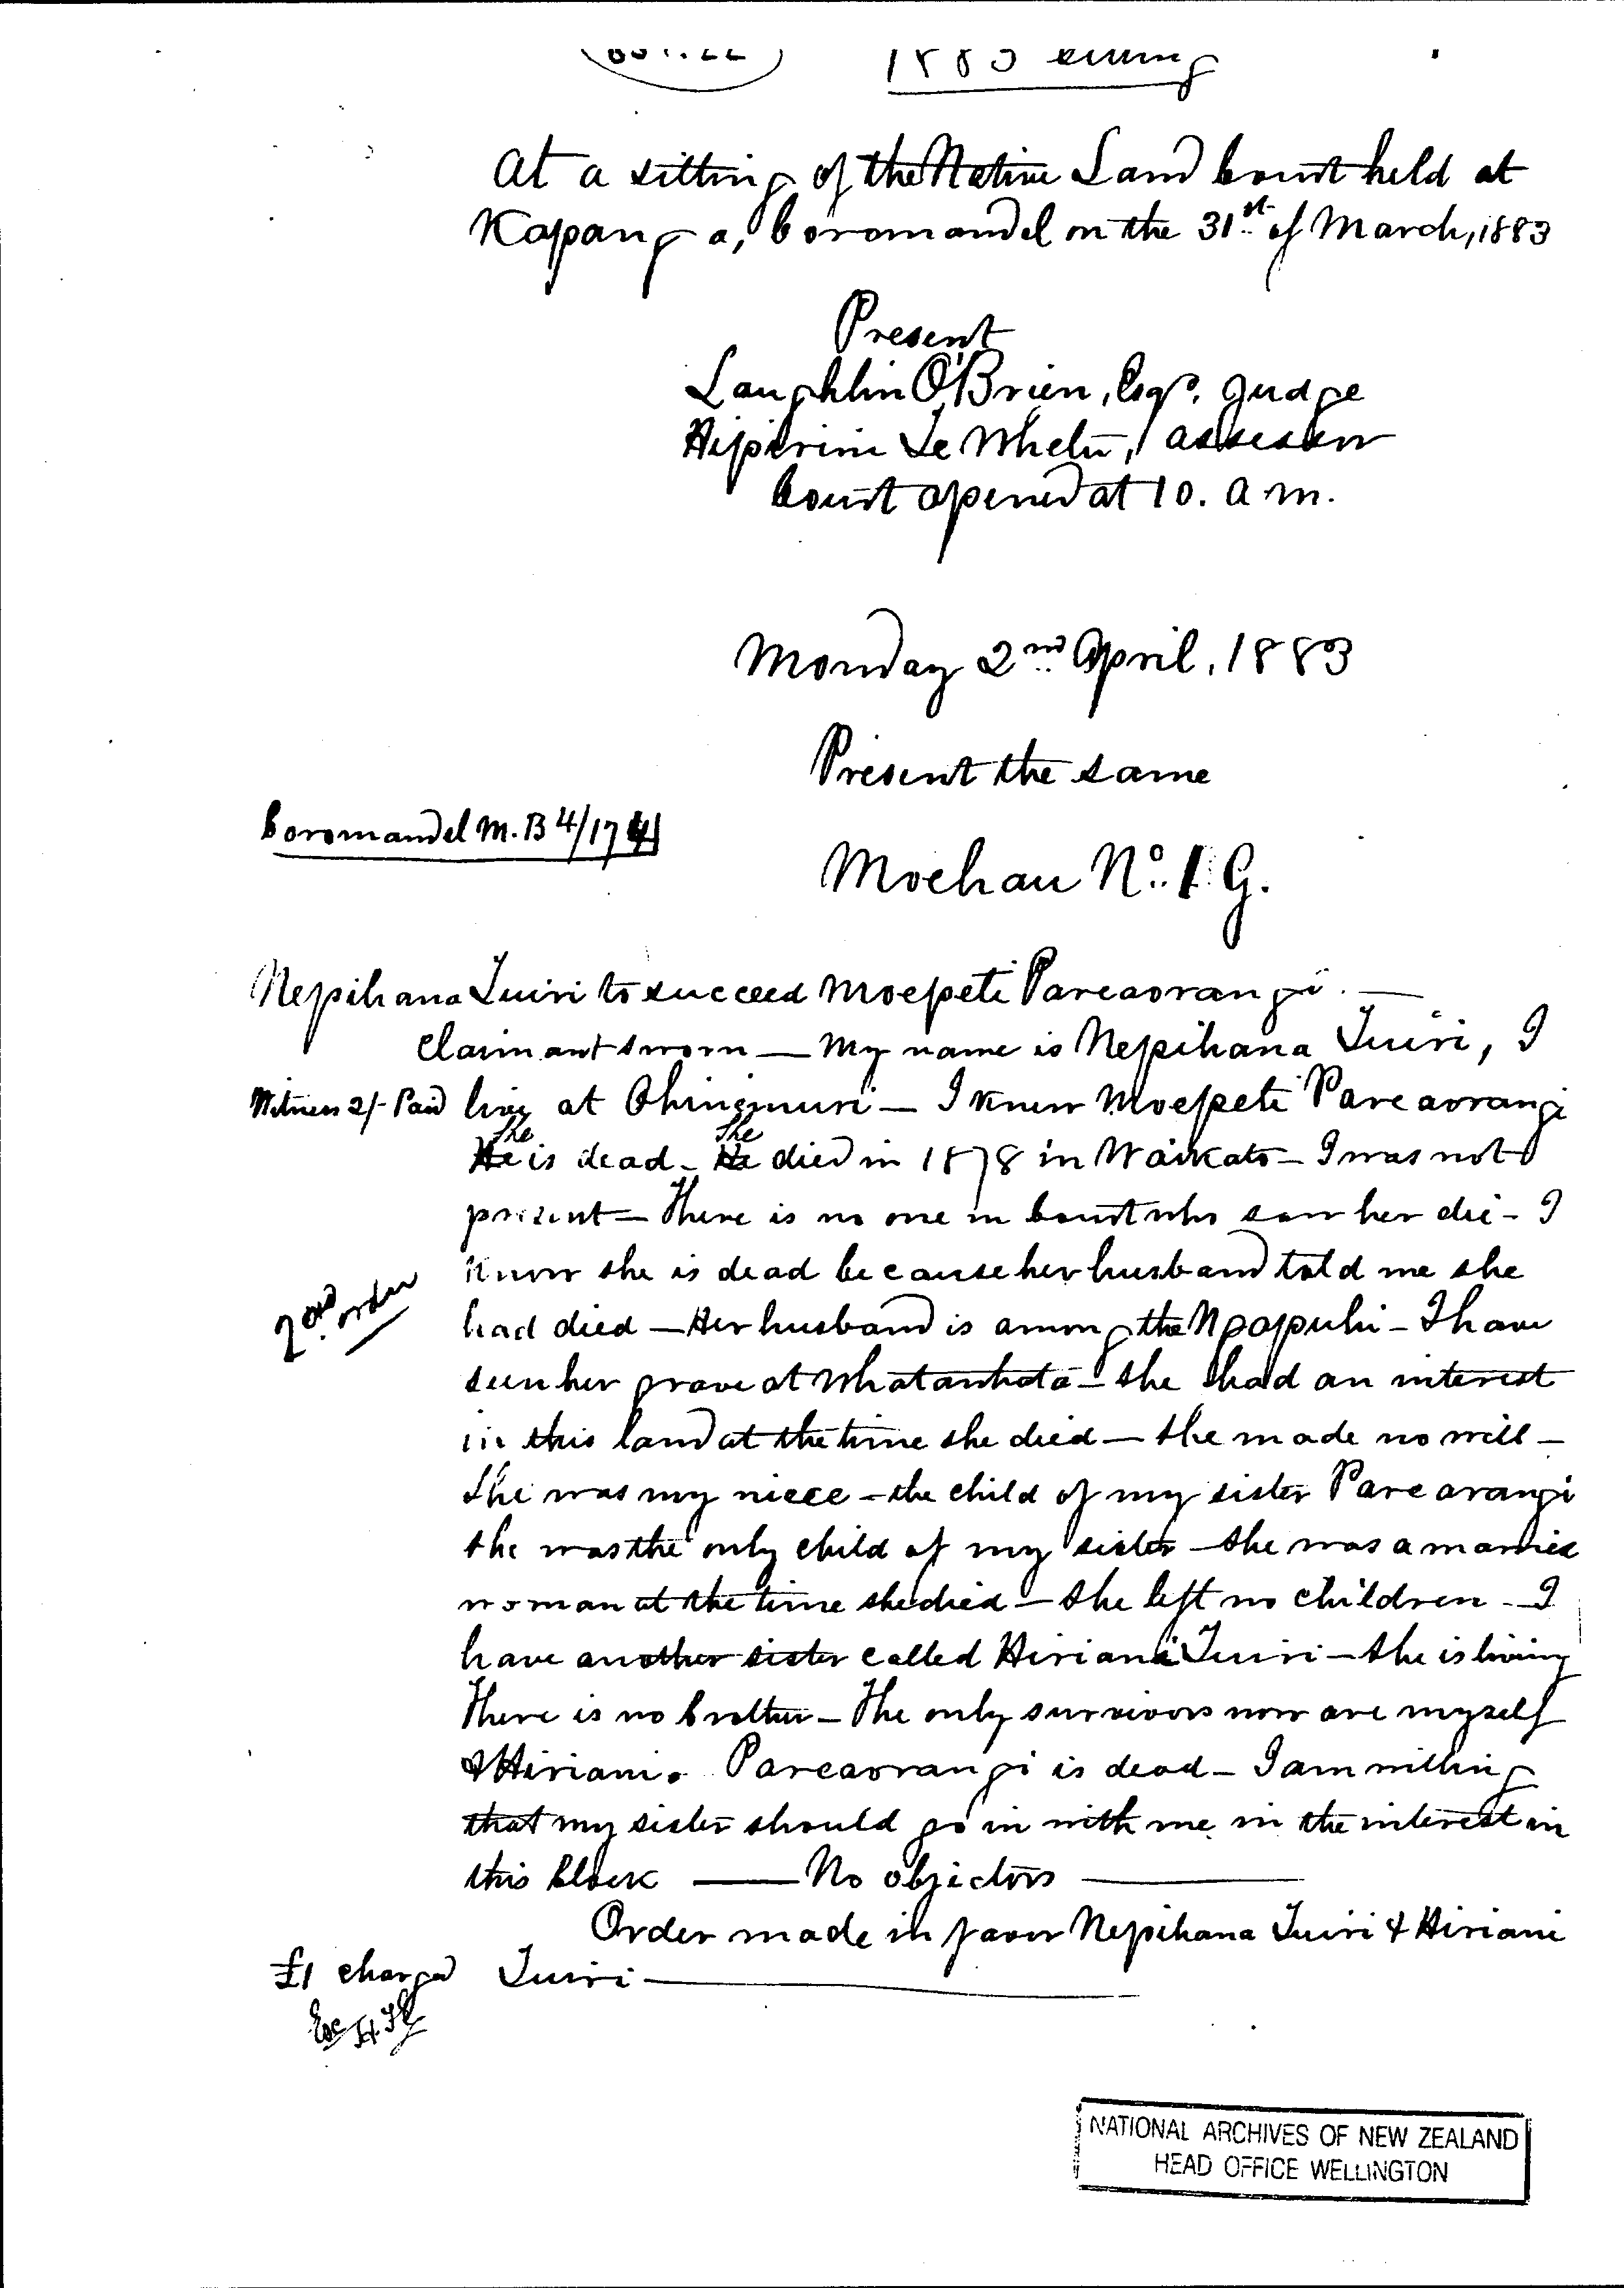 1883
At a sitting of the Native Land Court held at
Kapanga, Coromandel on the 31st of March, 1883
Present
Laughlin O'Brien, Esqr. Judge
Hipirini Te Whetu, Assessor
Court opened at 10. a m.
Monday 2nd April, 1883
Present the same
Coromandel M.B 4/174
Moehau No. 1 G.
Nepihana Tuiri to succeed Moepeti Pareaorangi. —
Claimant sworn — My name is Nepihana Tuiri, I
Witness 2/- Paid live at Ohinemuri — I knew Moepeti Pareaorangi
She She
He is dead - He died in 1878 in Waikato - I was not
present - There is no one in Court who saw her die - I
know she is dead because her husband told me she
2nd order
had died - Her husband is among the Ngapuhi - I have
seen her grave at - She had an interest
in this land at the time she died - She made no will -
She was my niece - the child of my sister Parearangi
She was the only child of my sister - She was a married
woman at the time she died - She left no children - I
have another sister called Hiriani Tuiri - She is living
There is no brother - The only survivors now are myself
& Hiriani. Pareaorangi is dead - I am willing
that my sister should go in with me in the interest in
this block —— No objectors ——
Order made in favor Nepihana Tuiri & Hiriani
£1 charged Tuiri ——
NATIONAL ARCHIVES OF NEW ZEALAND
HEAD OFFICE WELLINGTON